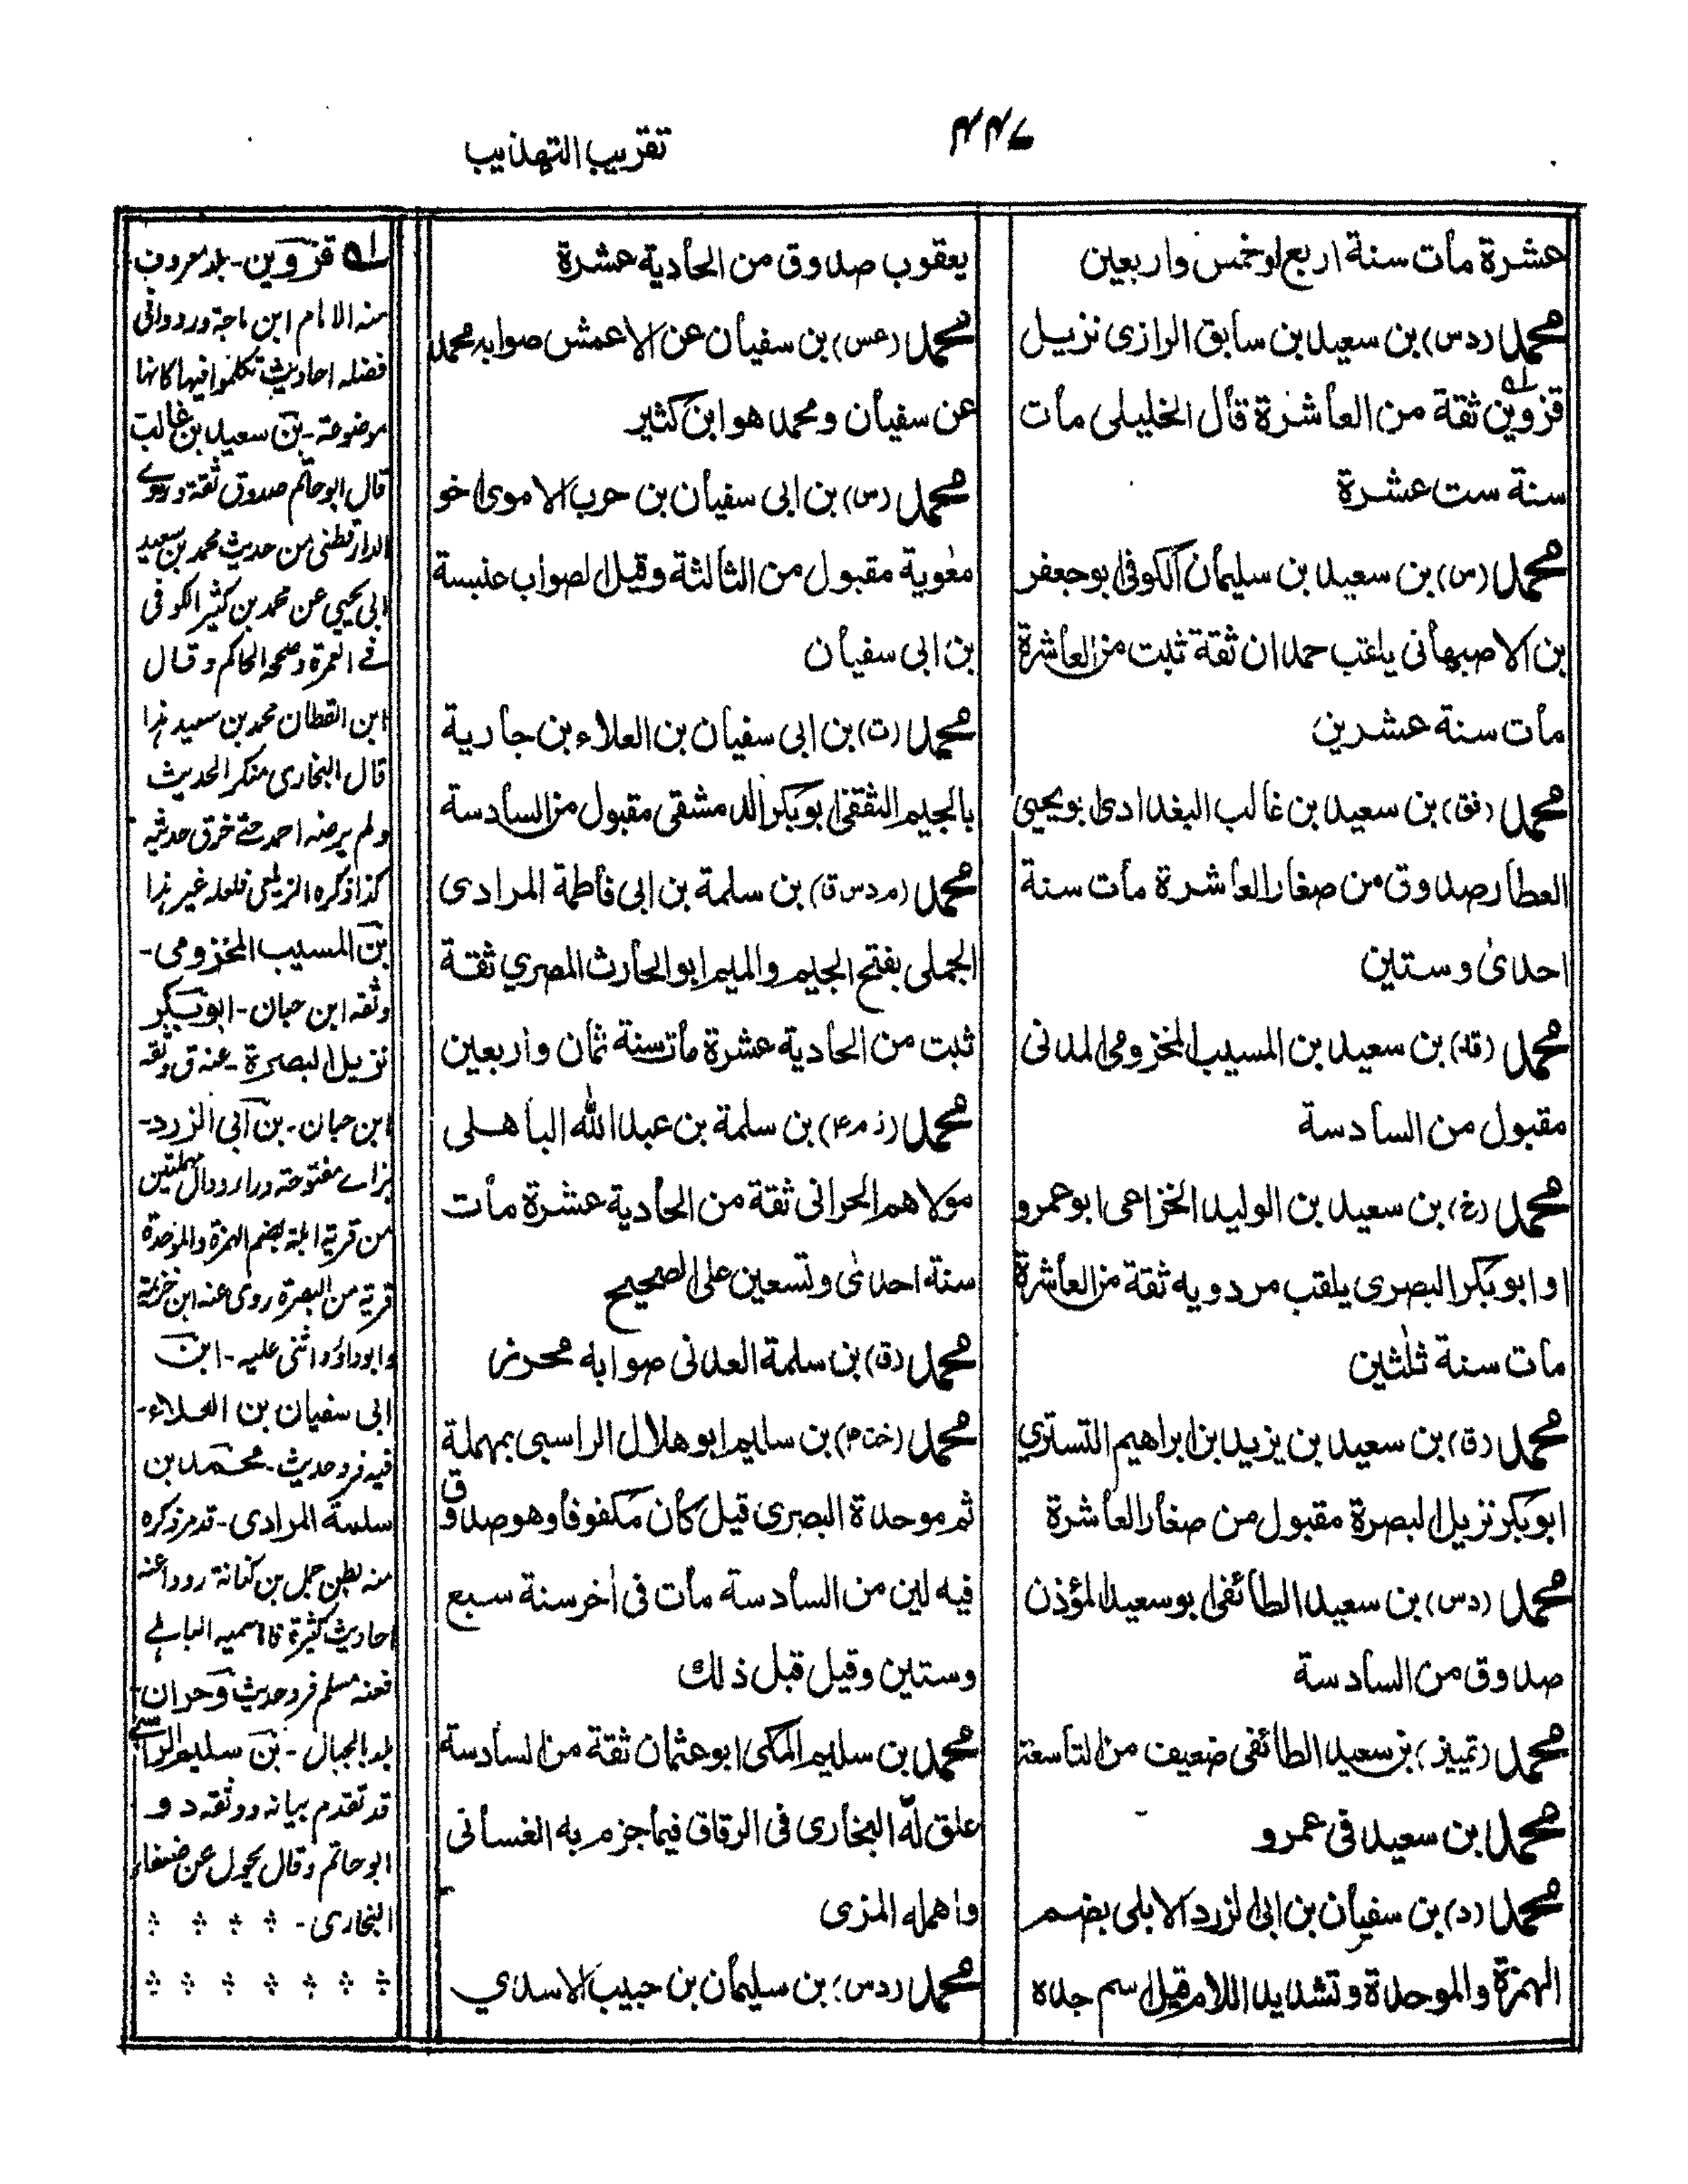 تقريب التهذيب
عشرة مات سنة اربع او خمس واربعين
محمد (د س) بن سعيد بن سابق الرازى نزيل
قزوين ثقة من العاشرة قال الخليلى مات
سنة ست عشرة
محمد (س) بن سعيد بن سليمان الكوفى ابو جعفر
بن الاصبهانى يلقب حمدان ثقة ثبت من العاشرة
مات سنة عشرين
محمد (فق) بن سعيد بن غالب البغدادى ابو يحيى
العطار صدوق من صغار العاشرة مات سنة
احدى وستين
محمد (قد) بن سعيد بن المسيب المخزومى المدنى
مقبول من السادسة
محمد (غ) بن سعيد بن الوليد الخزاعى ابو عمرو
او ابو بكر البصرى يلقب مردويه ثقة من العاشرة
مات سنة ثلثين
محمد (ق) بن سعيد بن يزيد بن ابراهيم التستري
ابو بكر نزيل البصرة مقبول من صغار العاشرة
محمد (د س) بن سعيد الطائفى ابو سعيد المؤذن
صدوق من السادسة
محمد (تمييز) بن سعيد الطائفى ضعيف من التاسعة
محمد بن سعيد فى عمرو
محمد (د) بن سفيان بن ابى الزرد الابلى بضم
الهمزة والموحدة وتشديد اللام قيل اسم جده
يعقوب صدوق من الحادية عشرة
محمد (عس) بن سفيان عن الاعمش صوابه محمد
عن سفيان ومحمد هو ابن كثير
محمد (س) بن ابى سفيان بن حرب الاموى اخو
معوية مقبول من الثالثة وقيل الصواب عنبسة
بن ابى سفيان
محمد (ت) بن ابى سفيان بن العلاء بن جارية
بالجيم الثقفى ابو بكر الدمشقى مقبول من السادسة
محمد (م د س ق) بن سلمة بن ابى فاطمة المرادى
الجملى بفتح الجيم والميم ابو الحارث المصري ثقة
ثبت من الحادية عشرة مات سنة ثمان واربعين
محمد (ز م ۴) بن سلمة بن عبد الله الباهلى
مولاهم الحرانى ثقة من الحادية عشرة مات
سنة احدى وتسعين على الصحيح
محمد (ق) بن سلمة العدنى صوابه محرز
محمد (خت ۴) بن سليم ابو هلال الراسبى بمهملة
ثم موحدة البصرى قيل كان مكفوفا وهو صدوق
فيه لين من السادسة مات فى اخر سنة سبع
وستين وقيل قبل ذلك
محمد بن سليم المكى ابو عثمان ثقة من السادسة
علق له البخارى فى الرقاق فيما جزم به الغسانى
واهمله المزى
محمد (د س) بن سليمان بن حبيب الاسدي
له قزوين - بلد معروف
منه الامام ابن ماجة ورد وافى
فضله احاديث تكلموا فيها كانها
موضوعة - بن سعيد بن غالب
قال ابو حاتم صدوق ثقة وروى
الدارقطنى من حديث محمد بن سعيد
ابى يحيى عن محمد بن كثير الكوفى
فى العمرة وصححه الحاكم وقال
ابن القطان محمد بن سعيد هذا
قال البخارى منكر الحديث
ولم يرضه احمد حتى خرق حديثه
كذا ذكره الزيلعى فلعله غير هذا
بن المسيب المخزومى -
وثقه ابن حبان - ابو بكر
نزيل البصرة - عنه ق وثقه
ابن حبان - بن ابى الزرد -
بزاے مفتوحة وراء ودال مهملتين
من قرية ابلة بضم الهمزة والموحدة
قرية من البصرة روى عنه ابن خزيمة
وابو داؤد واثنى عليه - ابن
ابى سفيان بن العلاء -
فيه فرد حديث - محمد بن
سلمة المرادى - قد مر ذكره
منه بطن جمل بن كنانة رووا عنه
احاديث كثيرة فاما سميه الباهلى
فعنه مسلم فرد حديث وحران -
بلد بالجبال - بن سليم الراسبى
قد تقدم بيانه ووثقه د و
ابو حاتم وقال يحول عن ضعفاء
البخارى -